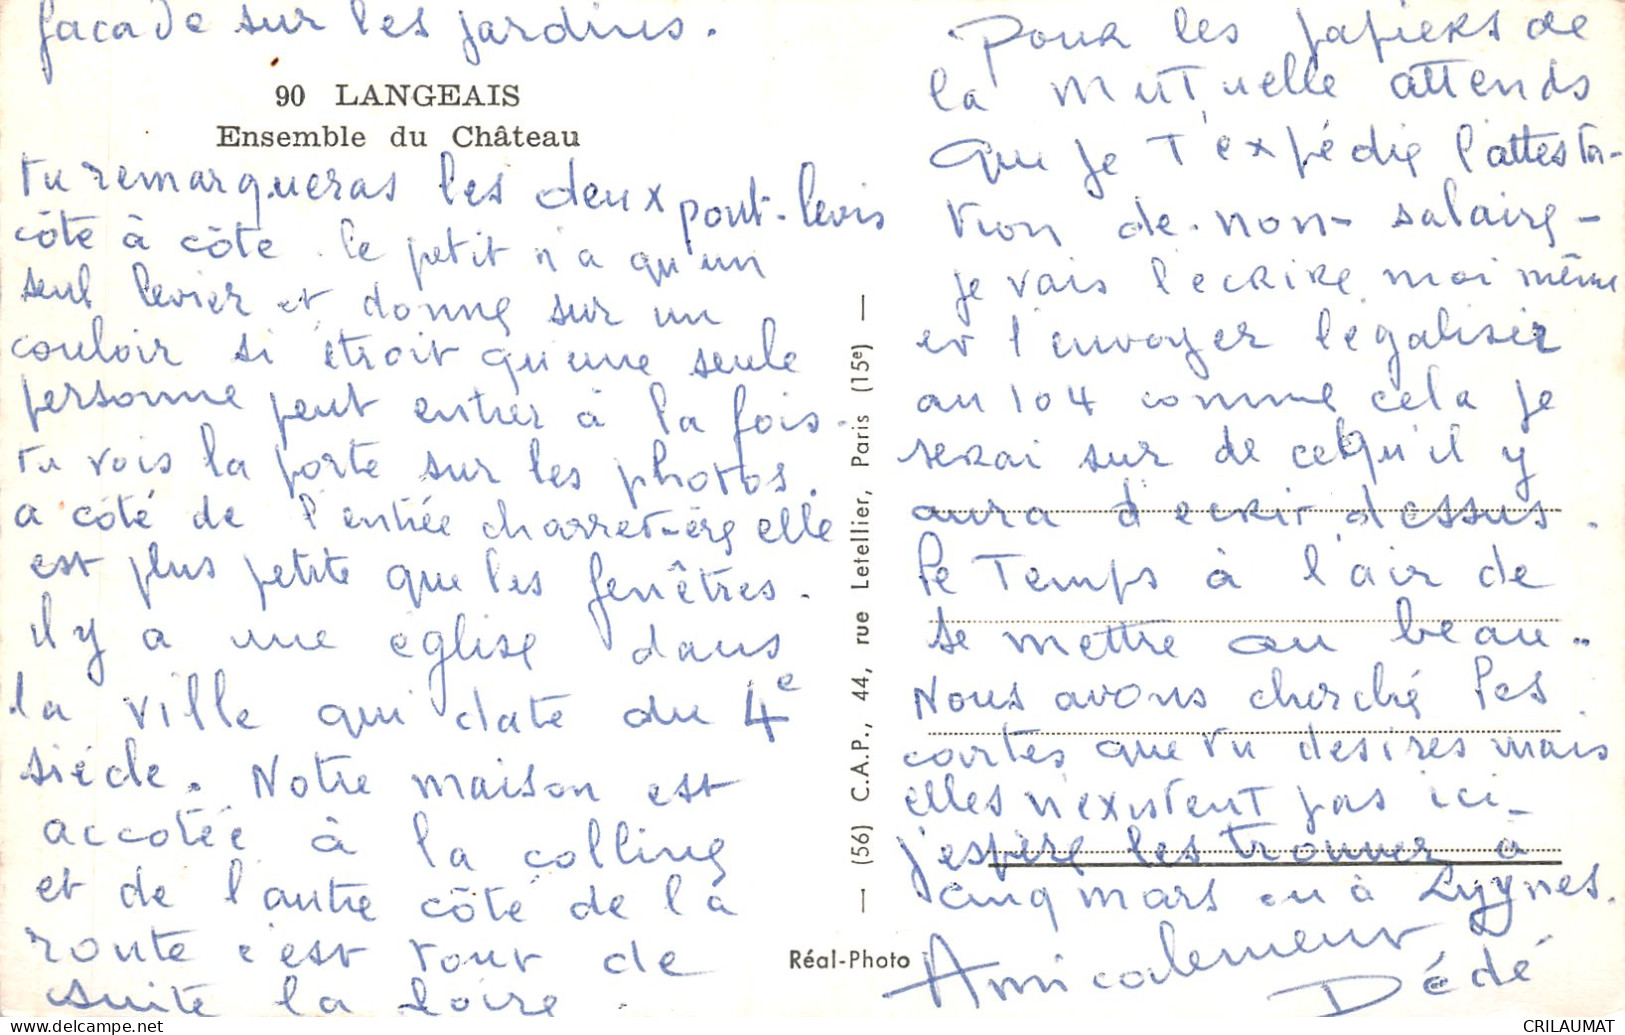 facade sur les jardins.
90 LANGEAIS
Ensemble du Château
tu remarqueras les deux pont-levis
côte à côte. le petit n'a qu'un
seul levier et donne sur un
couloir si étroit qu'une seule
personne peut entrer à la fois.
tu vois la porte sur les photos.
a côté de l'entrée charret-ère elle
est plus petite que les fenêtres.
il y a une église dans
la ville qui date du 4e
siécle. Notre maison est
accotée à la colline
et de l'autre côté de la
route c'est tout de
suite la Loire.
— (56) C.A.P., 44, rue Letellier, Paris (15e) —
Réal-Photo
Pour les papiers de
la mutuelle attends
que je t'expédie l'attesta-
tion de-non-salaire-
je vais l'ecrire moi même
et l'envoyer legaliser
au 104 comme cela je
serai sur de ce qu'il y
aura d'ecrit dessus.
le Temps à l'air de
se mettre au beau..
Nous avons cherché les
cartes que tu desires mais
elles n'existent pas ici-
j'espère les trouver à
cinq mars ou à Luynes.
Amicalement
Dédé
CRILAUMAT